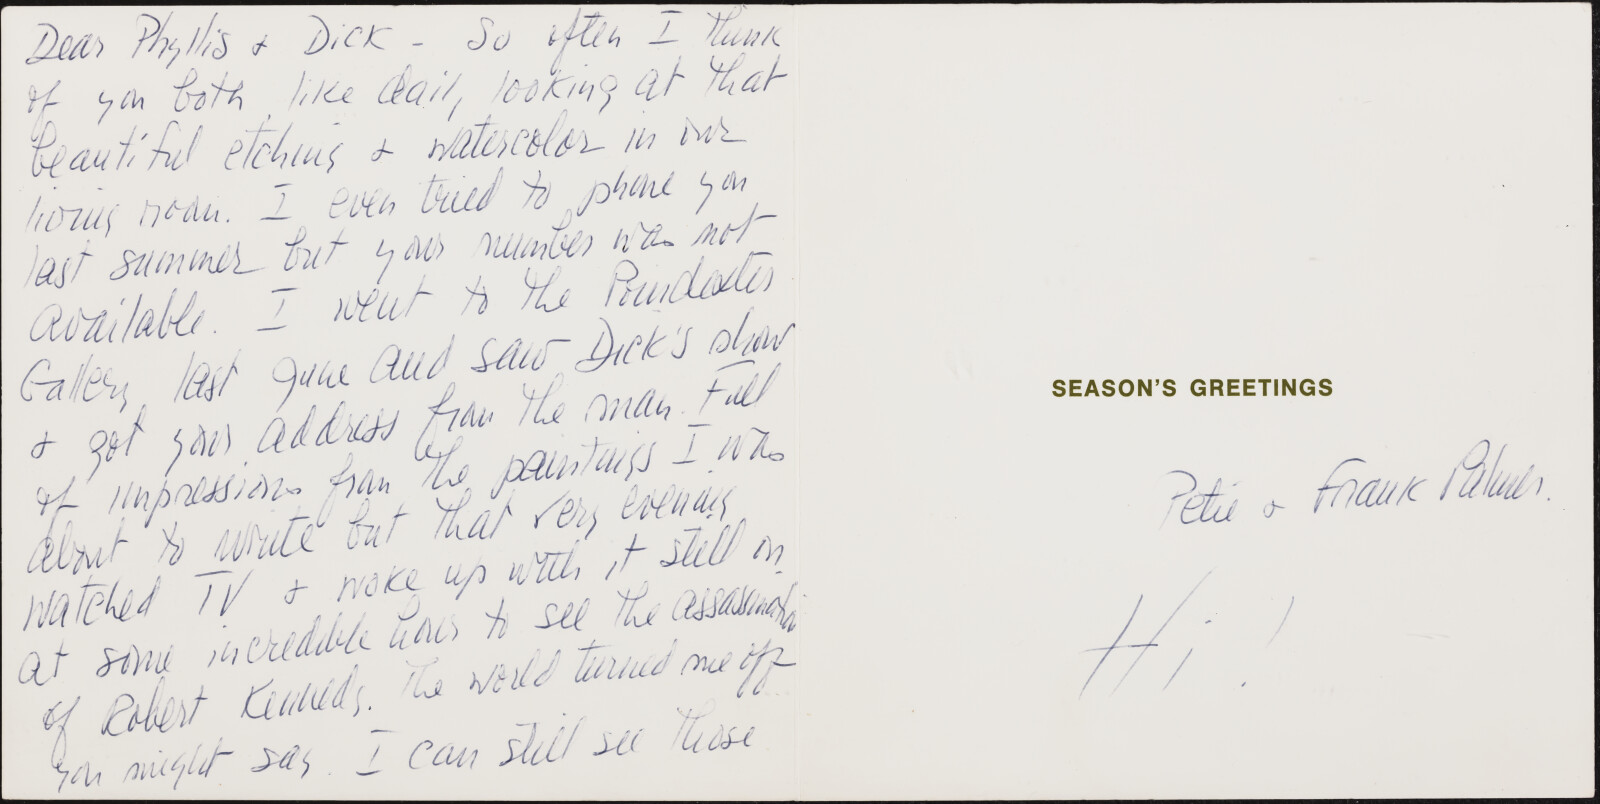 Dear Phyllis & Dick - So often I think
of you both, like daily, looking at that
beautiful etching & watercolor in our
living room. I even tried to phone you
last summer but your number was not
available. I went to the Poindexter
Gallery last June and saw Dick's show
& got your address from the man. Full
of impressions from the paintings I was
about to write but that very evening
watched TV & woke up with it still on
at some incredible hour to see the assassination
of Robert Kennedy. The world turned me off
you might say. I can still see those
SEASON'S GREETINGS
Petie & Frank Palmer.
Hi!